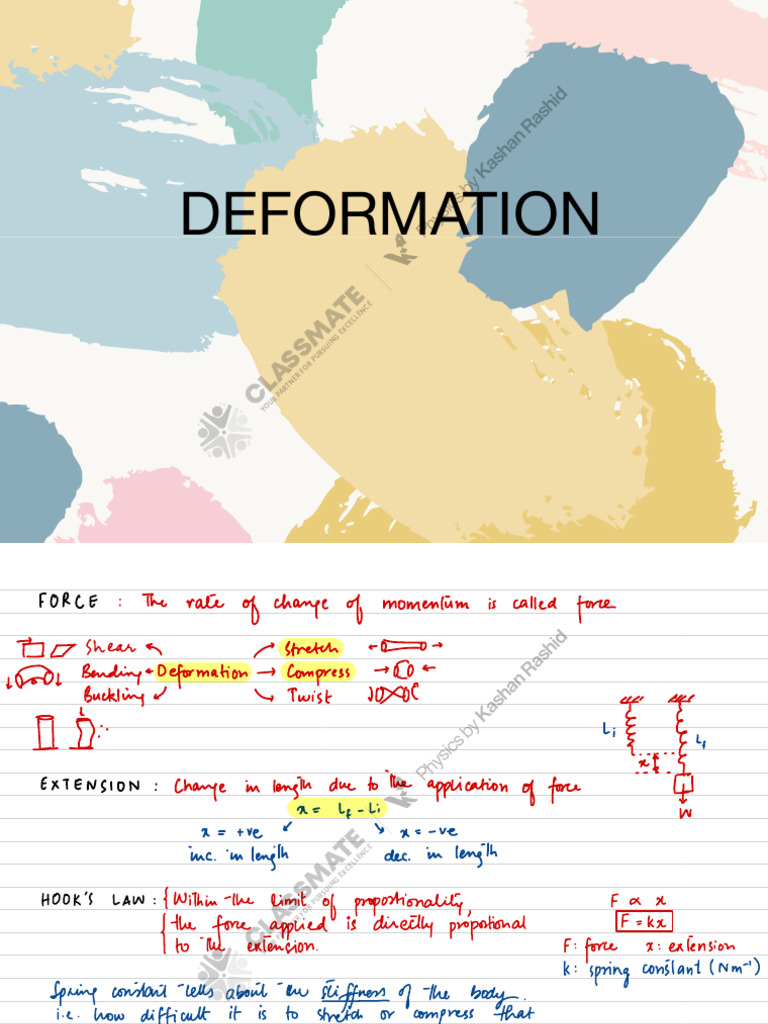 DEFORMATION
Physics by Kashan Rashid
CLASSMATE
YOUR PARTNER FOR PURSUING EXCELLENCE
FORCE : The rate of change of momentum is called force
Shear Stretch
Bending Deformation Compress
Buckling Twist
Physics by Kashan Rashid
Li Lf
x
W
EXTENSION : Change in length due to the application of force
x = Lf - Li
x = +ve x = -ve
inc. in length dec. in length
CLASSMATE
YOUR PARTNER FOR PURSUING EXCELLENCE
HOOK'S LAW : Within the limit of proportionality, F ∝ x
the force applied is directly propotional F = kx
to the extension. F: force x: extension
k: spring constant (Nm⁻¹)
Spring constant tells about the stiffness of the body.
i.e. how difficult it is to stretch or compress that